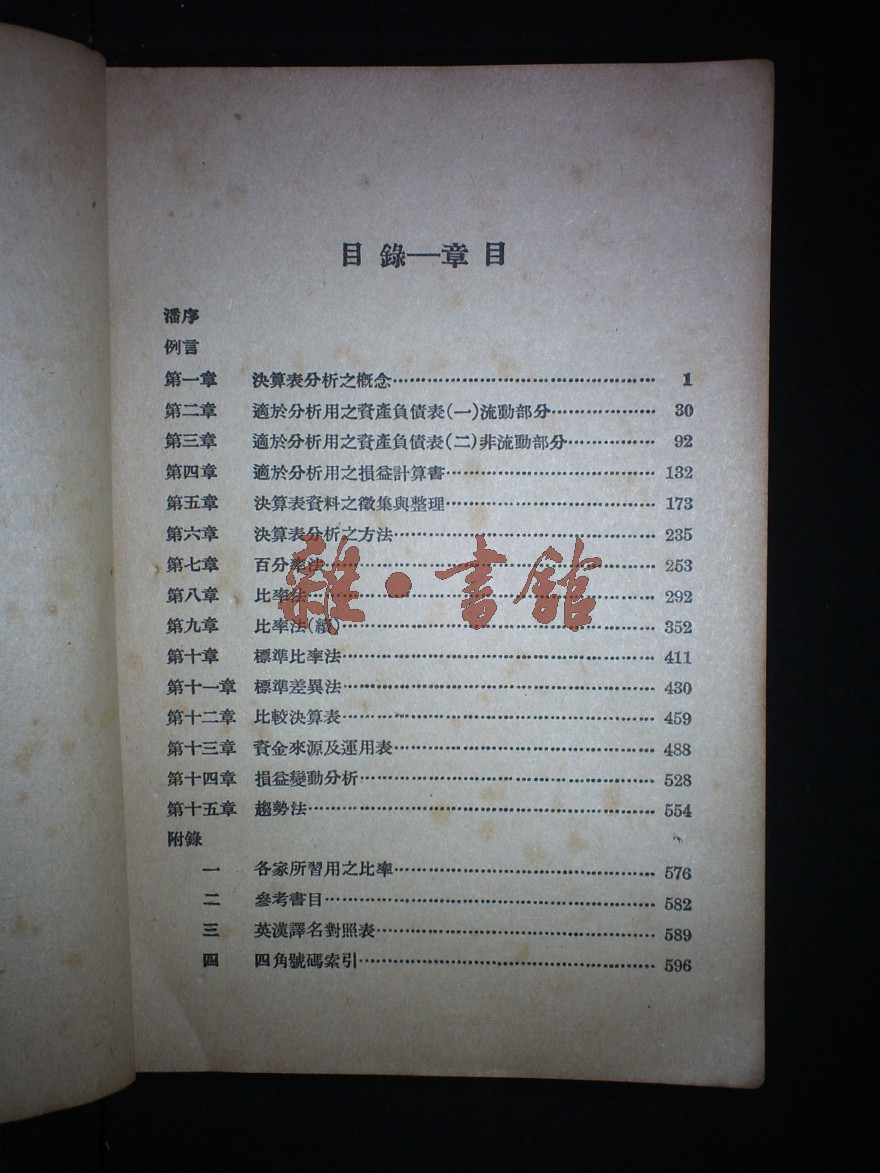 目錄—章目
潘序
例言
第一章 決算表分析之概念 1
第二章 適於分析用之資產負債表(一)流動部分 30
第三章 適於分析用之資產負債表(二)非流動部分 92
第四章 適於分析用之損益計算書 132
第五章 決算表資料之徵集與整理 173
第六章 決算表分析之方法 235
第七章 百分率法 253
第八章 比率法 292
第九章 比率法(續) 352
第十章 標準比率法 411
第十一章 標準差異法 430
第十二章 比較決算表 459
第十三章 資金來源及運用表 488
第十四章 損益變動分析 528
第十五章 趨勢法 554
附錄
一 各家所習用之比率 576
二 參考書目 582
三 英漢譯名對照表 589
四 四角號碼索引 596
雜·書館